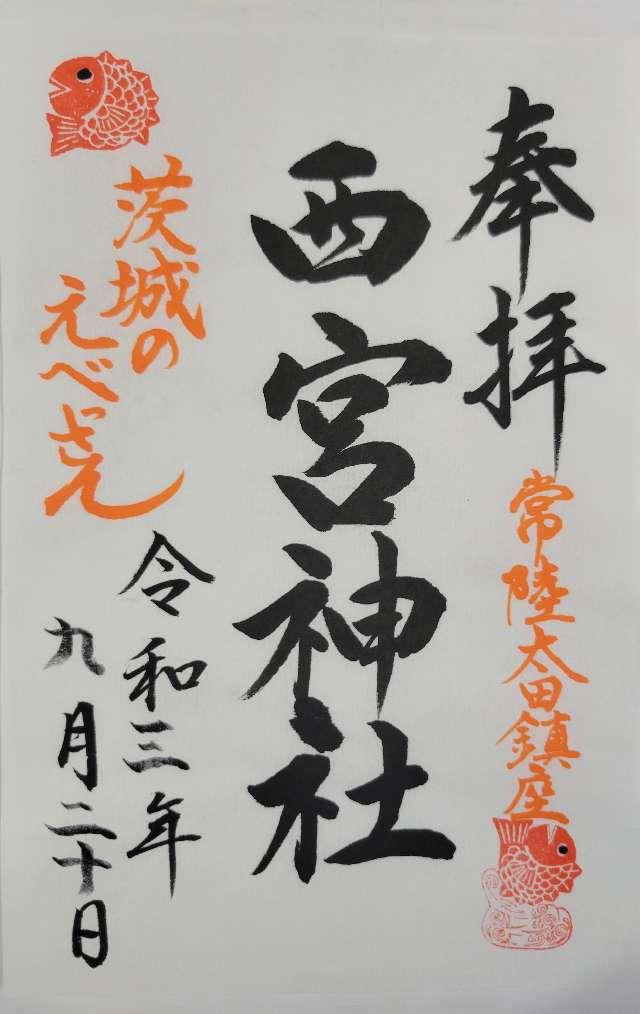 奉拝
常陸太田鎮座
西宮神社
茨城の
えべっさん
令和三年
九月二十日